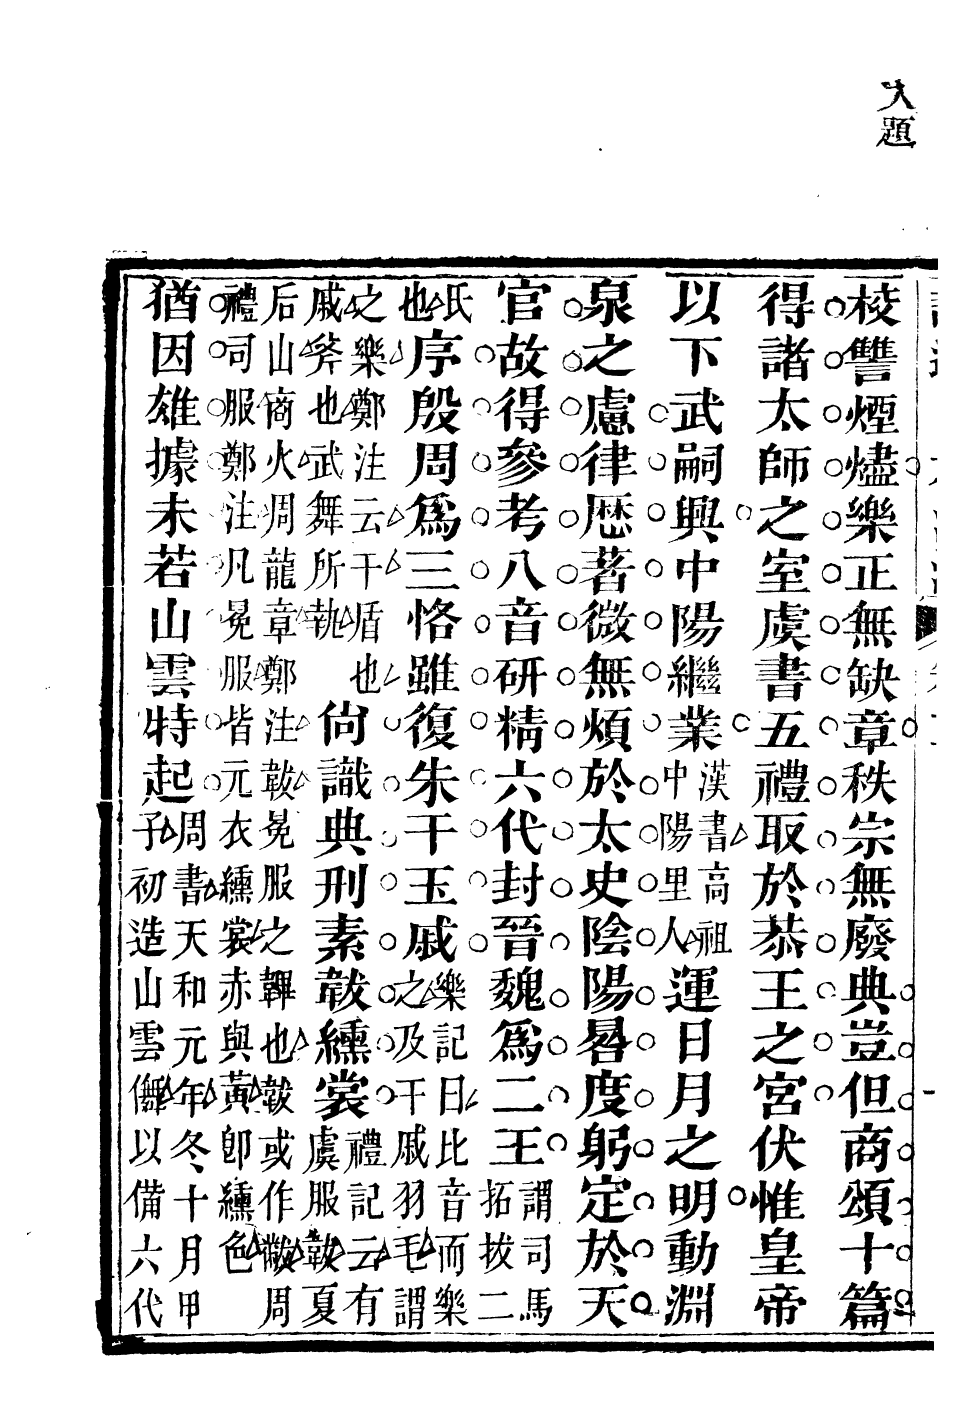 大題
棱讐煙燼樂正無缺章秩宗無廢典豈但商頌十篇
得諸太師之室虞書五禮取於恭王之宮伏惟皇帝
以下武嗣興中陽繼業漢書高祖中陽里人運日月之明動淵
泉之慮律歷著微無煩於太史陰陽晷度躬定於天
官故得參考八音研精六代封晉魏爲二王謂司馬拓拔二
氏也序殷周爲三恪雖復朱干玉戚樂記曰比音而樂之及干戚羽毛謂
之樂鄭注云干盾也戚斧也武舞所執尙識典刑素韍纁裳禮記云有虞服韍夏
后山商火周龍章鄭注韍冕服之韠也韍或作黻周禮司服鄭注凡冕服皆元衣纁裳赤與黃卽纁色
猶因雄據未若山雲特起周書天和元年冬十月甲子初造山雲儛以備六代